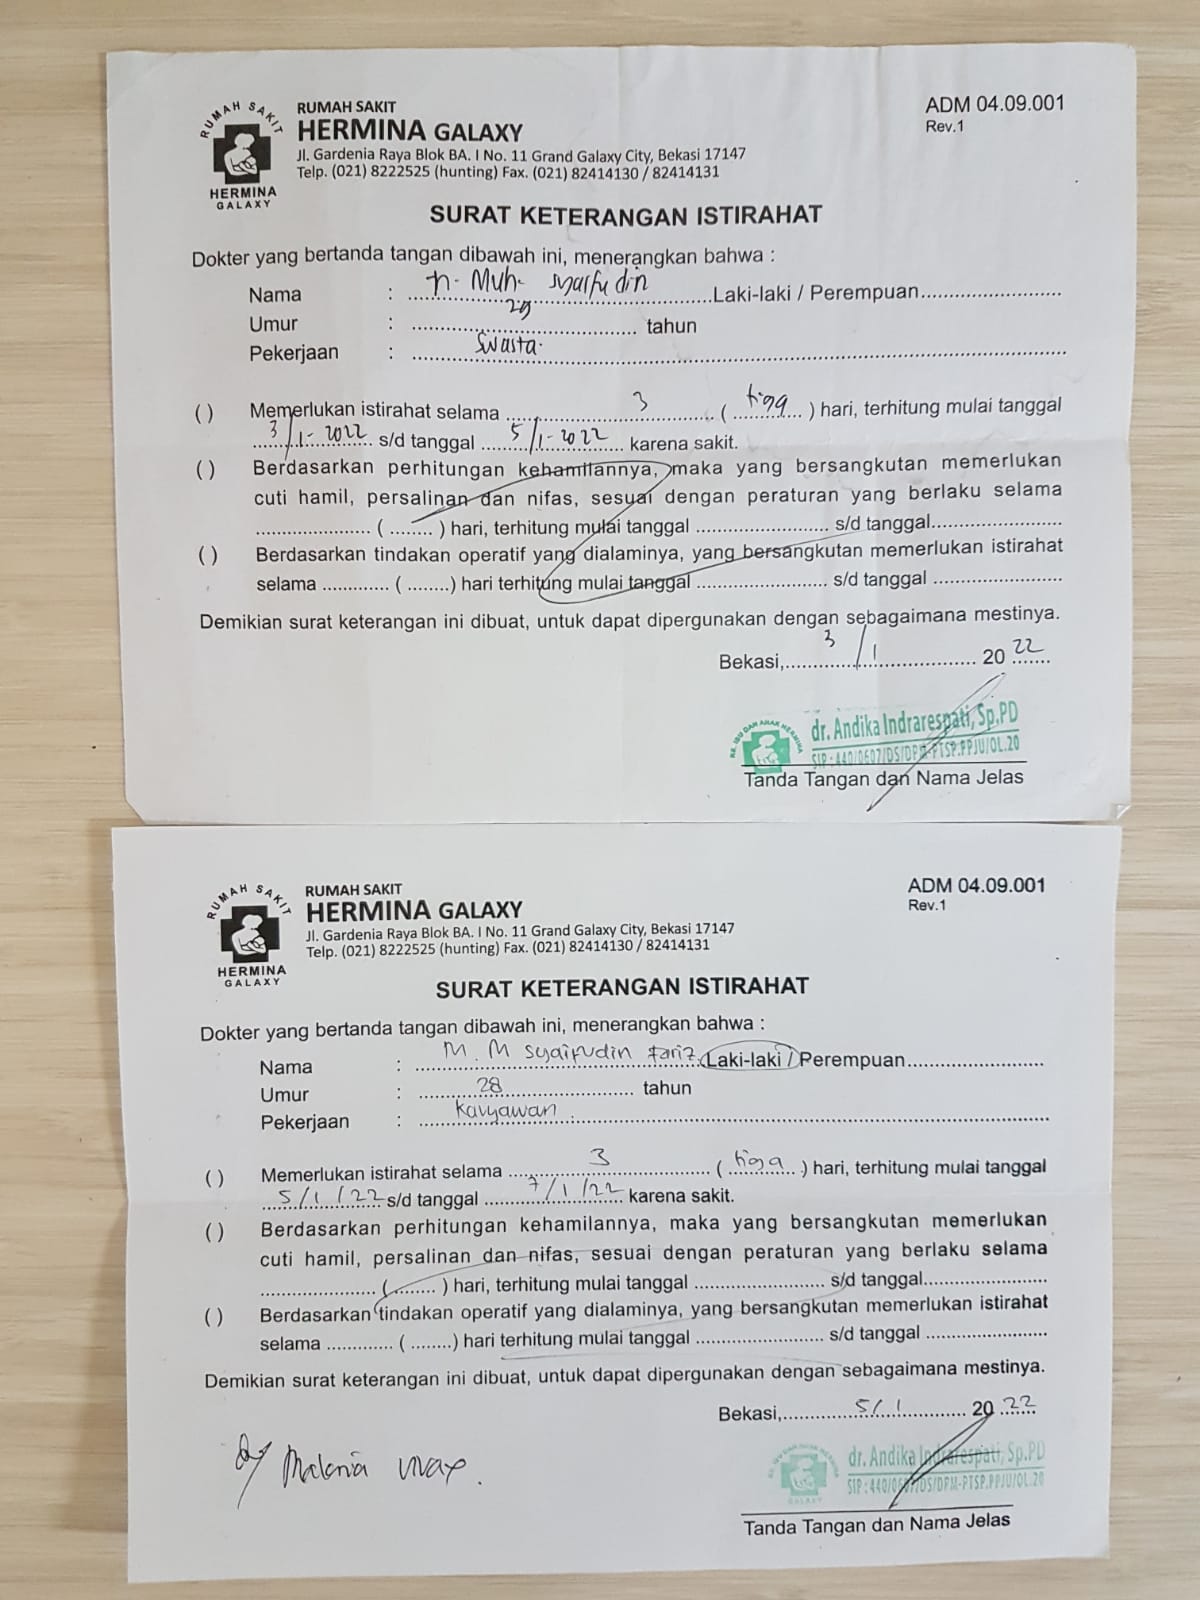 RUMAH SAKIT
HERMINA
GALAXY
RUMAH SAKIT
HERMINA GALAXY
Jl. Gardenia Raya Blok BA. I No. 11 Grand Galaxy City, Bekasi 17147
Telp. (021) 8222525 (hunting) Fax. (021) 82414130 / 82414131
ADM 04.09.001
Rev.1
SURAT KETERANGAN ISTIRAHAT
Dokter yang bertanda tangan dibawah ini, menerangkan bahwa :
Nama : Muh. Syaifudin Laki-laki / Perempuan
Umur : 29 tahun
Pekerjaan : Swasta
( ) Memerlukan istirahat selama 3 ( tiga ) hari, terhitung mulai tanggal
3/1-2022 s/d tanggal 5/1-2022 karena sakit.
( ) Berdasarkan perhitungan kehamilannya, maka yang bersangkutan memerlukan
cuti hamil, persalinan dan nifas, sesuai dengan peraturan yang berlaku selama
.................... ( ........ ) hari, terhitung mulai tanggal ....................... s/d tanggal.......................
( ) Berdasarkan tindakan operatif yang dialaminya, yang bersangkutan memerlukan istirahat
selama ............. ( ........) hari terhitung mulai tanggal ....................... s/d tanggal .......................
Demikian surat keterangan ini dibuat, untuk dapat dipergunakan dengan sebagaimana mestinya.
Bekasi, 3/1 20 22
RS. IBU DAN ANAK HERMINA
dr. Andika Indrarespati, Sp.PD
SIP : 440/0607/DS/DPM-PTSP.PPJU/OL.20
Tanda Tangan dan Nama Jelas
RUMAH SAKIT
HERMINA
GALAXY
RUMAH SAKIT
HERMINA GALAXY
Jl. Gardenia Raya Blok BA. I No. 11 Grand Galaxy City, Bekasi 17147
Telp. (021) 8222525 (hunting) Fax. (021) 82414130 / 82414131
ADM 04.09.001
Rev.1
SURAT KETERANGAN ISTIRAHAT
Dokter yang bertanda tangan dibawah ini, menerangkan bahwa :
Nama : M. M Syaifudin Fariz Laki-laki / Perempuan
Umur : 28 tahun
Pekerjaan : Karyawan
( ) Memerlukan istirahat selama 3 ( tiga ) hari, terhitung mulai tanggal
5/1/22 s/d tanggal 7/1/22 karena sakit.
( ) Berdasarkan perhitungan kehamilannya, maka yang bersangkutan memerlukan
cuti hamil, persalinan dan nifas, sesuai dengan peraturan yang berlaku selama
.................... ( ........ ) hari, terhitung mulai tanggal ....................... s/d tanggal.......................
( ) Berdasarkan tindakan operatif yang dialaminya, yang bersangkutan memerlukan istirahat
selama ............. ( ........) hari terhitung mulai tanggal ....................... s/d tanggal .......................
Demikian surat keterangan ini dibuat, untuk dapat dipergunakan dengan sebagaimana mestinya.
Bekasi, 5/1 20 22
Malaria vivax.
GALAXY
dr. Andika Indrarespati, Sp.PD
SIP : 440/0607/DS/DPM-PTSP.PPJU/OL.20
Tanda Tangan dan Nama Jelas